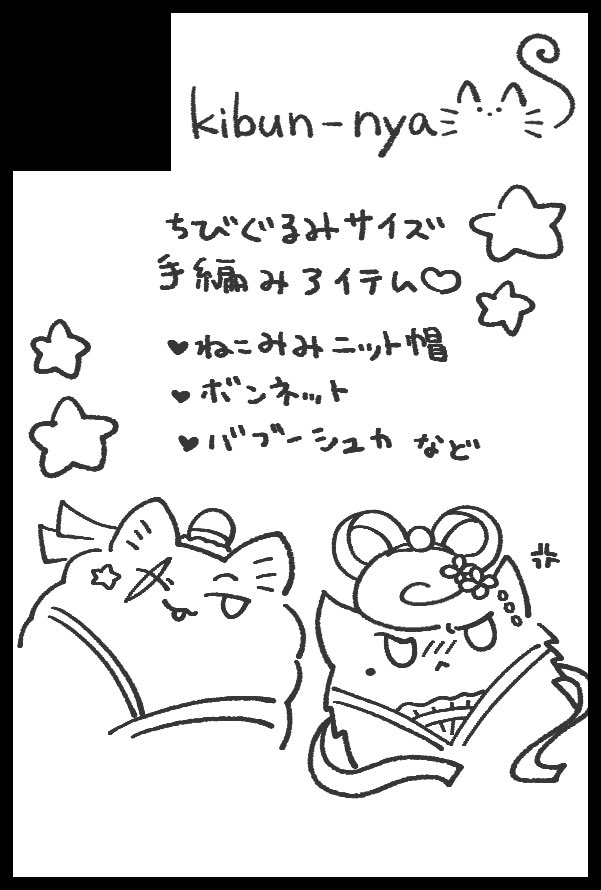 kibun-nya
ちびぐるみサイズ
手編みアイテム♡
♥ねこみみニット帽
♥ボンネット
♥バブーシュカ など